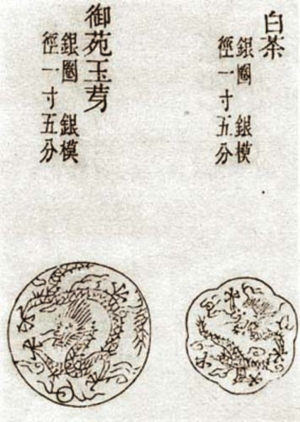 白茶
銀圈 銀模
徑一寸五分
御苑玉芽
銀圈 銀模
徑一寸五分